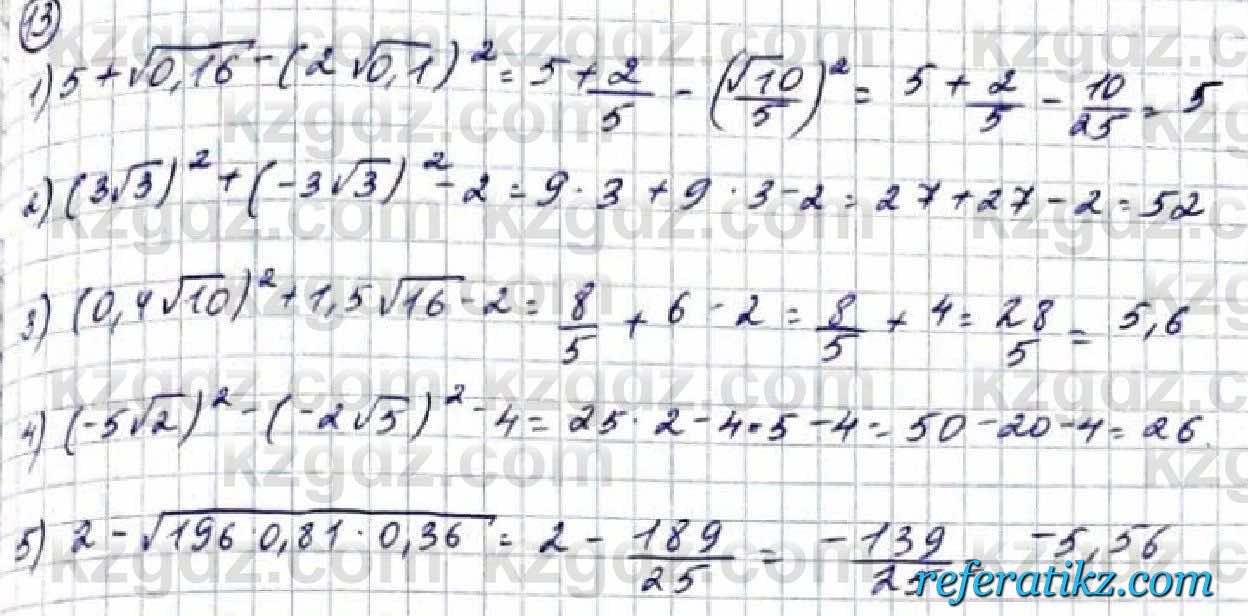 13
1) 5 + √0,16 - (2√0,1)² = 5 + 2/5 - (√10/5)² = 5 + 2/5 - 10/25 = 5
2) (3√3)² + (-3√3)² - 2 = 9 · 3 + 9 · 3 - 2 = 27 + 27 - 2 = 52
3) (0,4√10)² + 1,5√16 - 2 = 8/5 + 6 - 2 = 8/5 + 4 = 28/5 = 5,6
4) (-5√2)² - (-2√5)² - 4 = 25 · 2 - 4 · 5 - 4 = 50 - 20 - 4 = 26
5) 2 - √196 · 0,81 · 0,36 = 2 - 189/25 = -139/25 = -5,56
referatikz.com
kzgdz.com